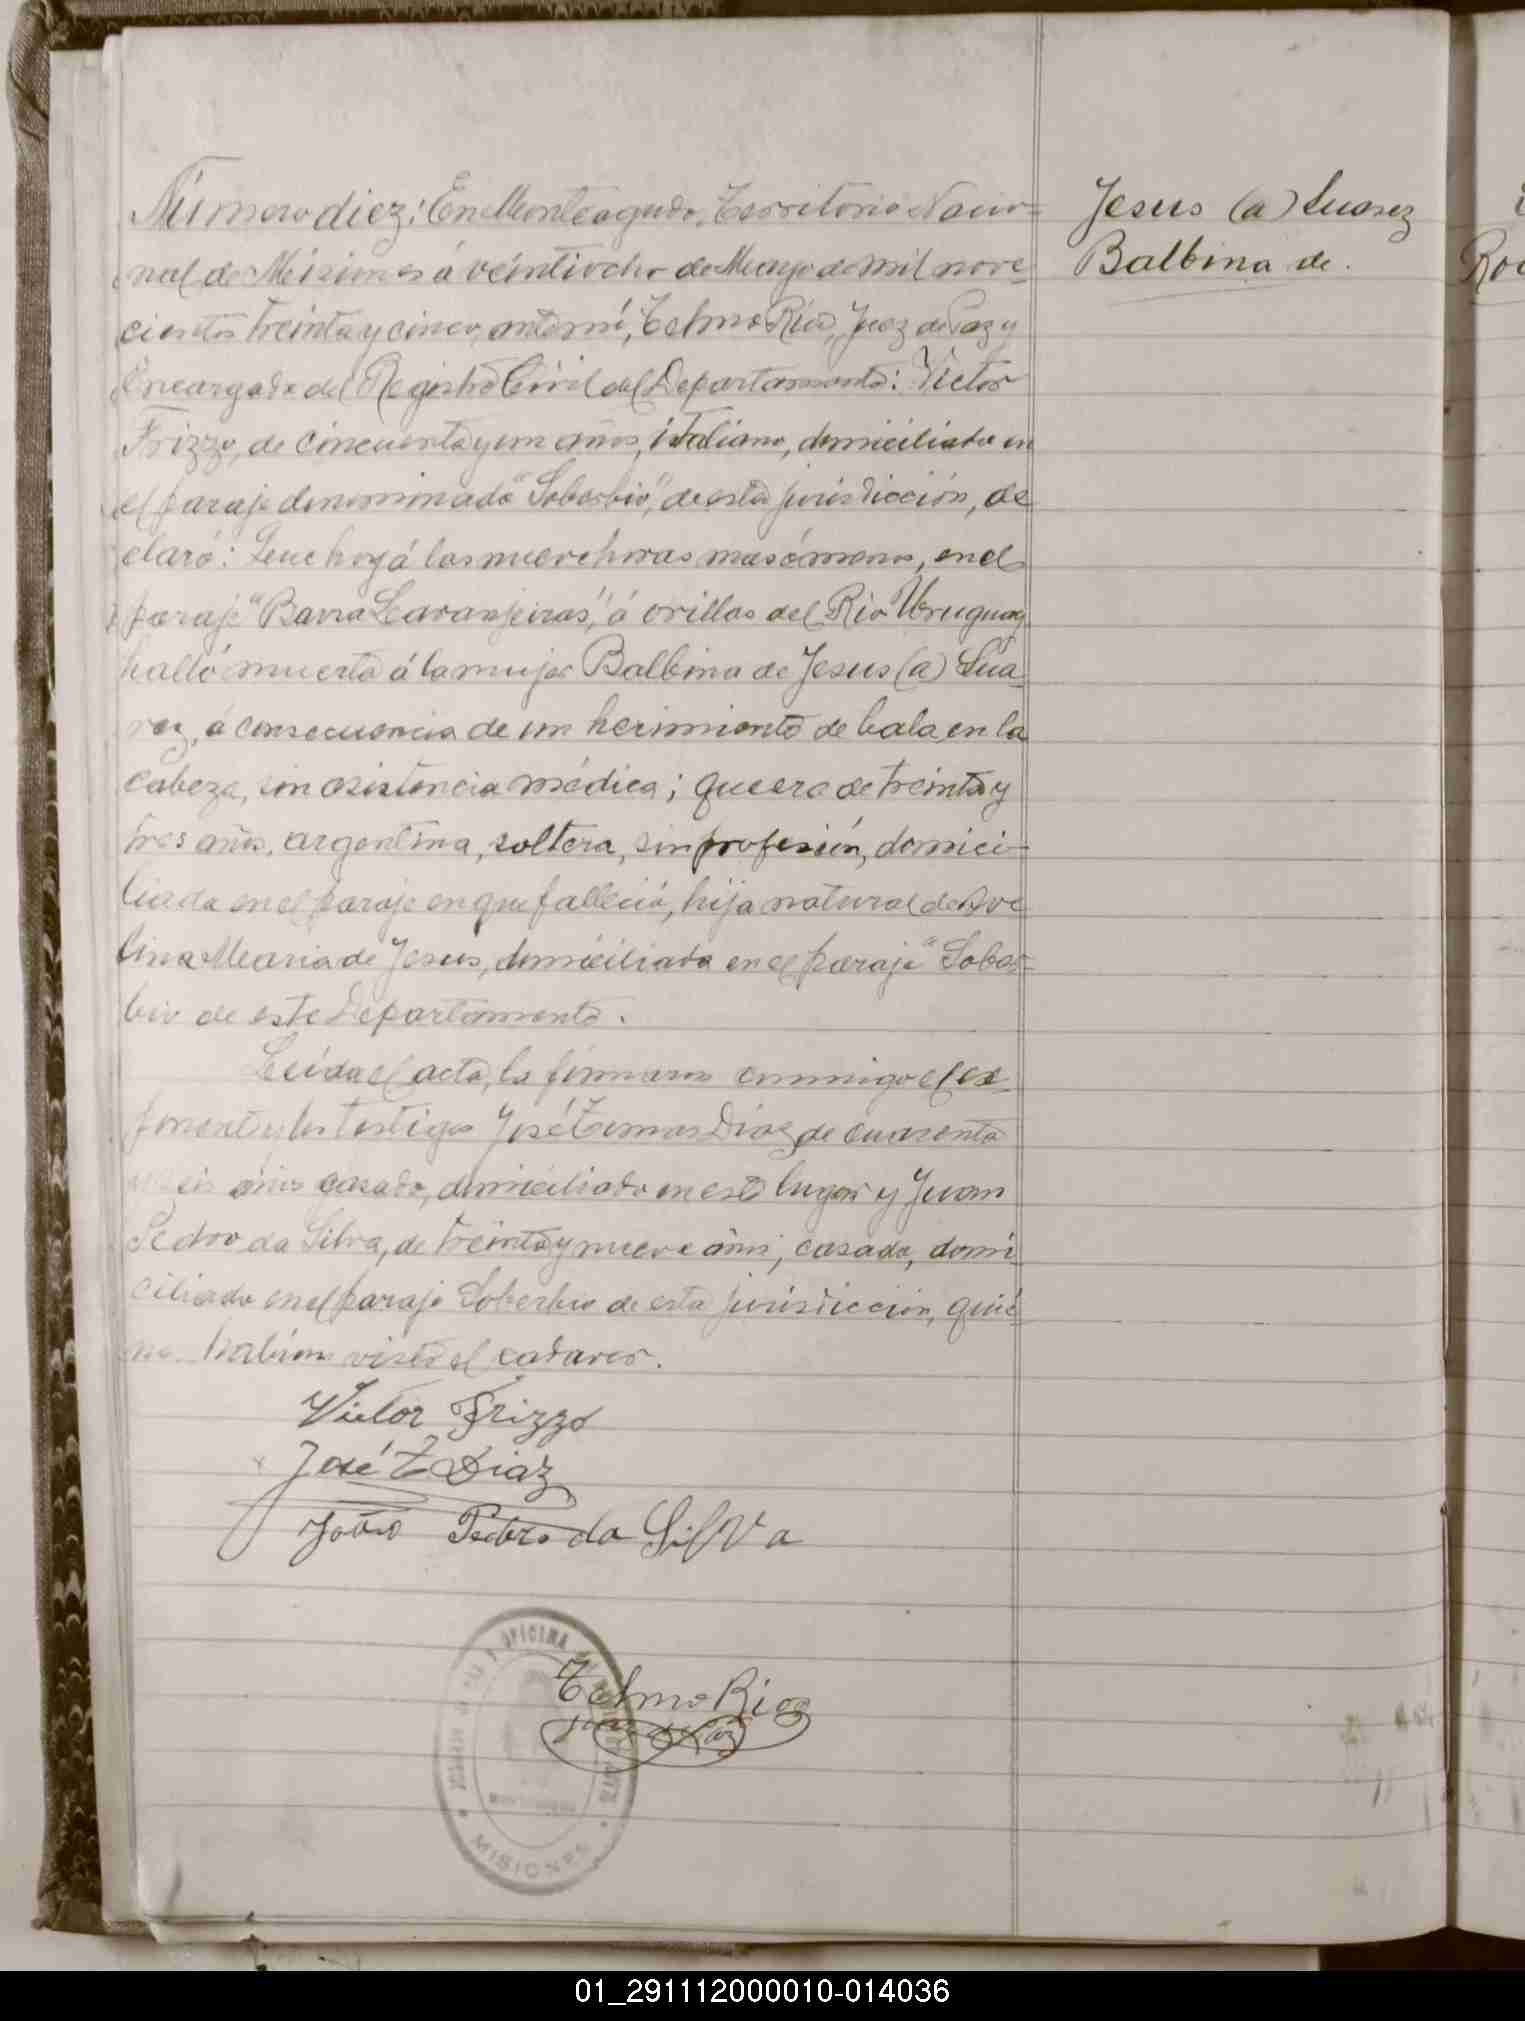 Número diez: En Monteagudo, Territorio Nacio-
nal de Misiones á veintiocho de Mayo de mil nove-
cientos treinta y cinco, ante mí, Telmo Rios, Juez de Paz y
Encargado del Registro Civil del Departamento: Victor
Frizzo, de cincuenta y un años, italiano, domiciliado en
el paraje denominado "Soberbio", de esta jurisdicción, de
claró: Que hoy á las nueve horas mas ó menos, en el
paraje "Barra Laranjeiras", á orillas del Rio Uruguay
halló muerta á la mujer Balbina de Jesus (a) Sua
rez, á consecuencia de un herimiento de bala en la
cabeza, sin asistencia médica; que era de treinta y
tres años, argentina, soltera, sin profesión, domici-
liada en el paraje en que falleció, hija natural de Ave
lina Maria de Jesus, domiciliada en el paraje "Sober-
bio de este Departamento.
Leida el acta, la firmaron conmigo el ex-
ponente y los testigos José Tomas Diaz de cuarenta
y seis años casado, domiciliado en este lugar y Juan
Pedro da Silva, de treinta y nueve años, casado, domi
ciliado en el paraje Soberbio de esta jurisdiccion, quié
nes habian visto el cadaver.
Victor Frizzo
José T Diaz
João Pedro da SilVa
Telmo Rios
Juez de Paz
OFICINA
MISIONES
Jesus (a) Suarez
Balbina de.
01_291112000010-014036